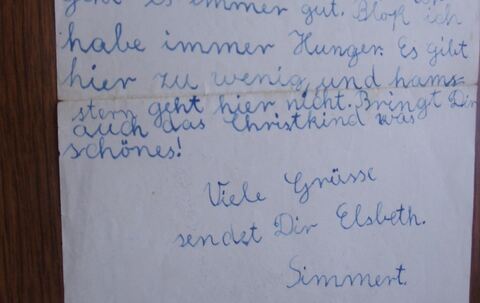 geht es immer gut. Bloß ich
habe immer Hunger. Es gibt
hier zu wenig, und hams-
stern geht hier nicht. Bringt Dir
auch das Christkind was
schönes!
Viele Grüsse
sendet Dir Elsbeth.
Simmert.